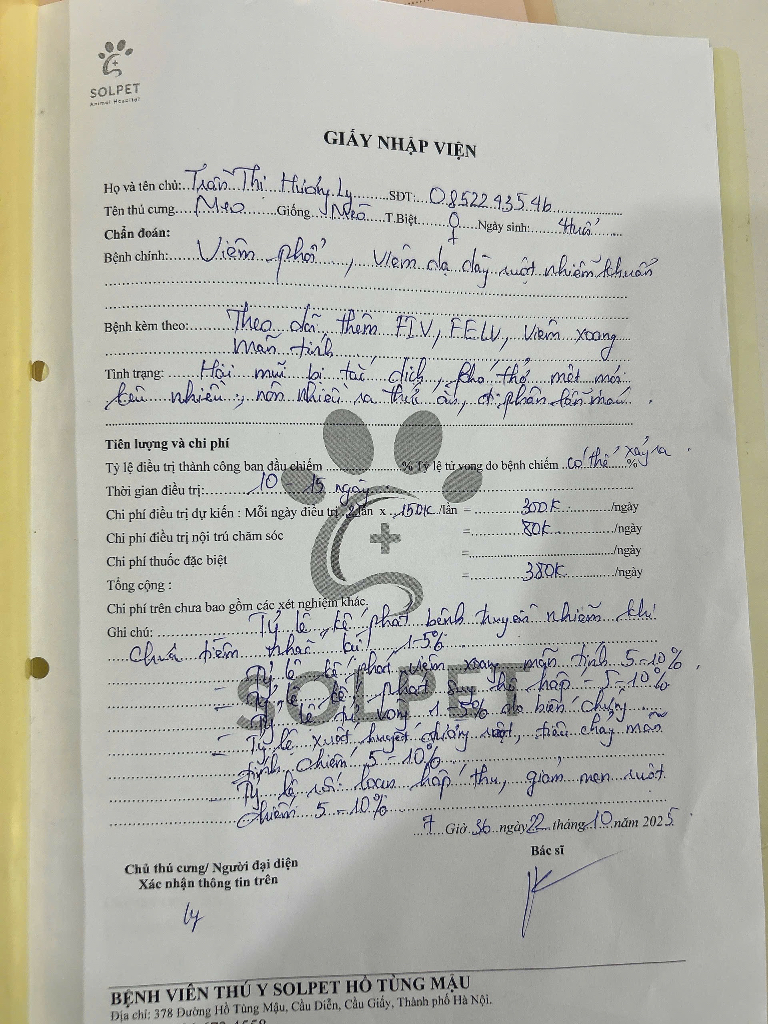 SOLPET
Animal Hospital
GIẤY NHẬP VIỆN
Họ và tên chủ: Trần Thị Hương Ly SĐT: 0852293546
Tên thú cưng Meo Giống Mèo T.Biệt ♀ Ngày sinh: 4 tuổi
Chẩn đoán:
Bệnh chính: Viêm phổi, viêm dạ dày ruột nhiễm khuẩn
Bệnh kèm theo: Theo dõi thêm FIV, FELV, viêm xoang
mãn tính
Tình trạng: Hai mũi bị tắc dịch, khó thở mệt mỏi
kêu nhiều, nôn nhiều ra thức ăn, đi phân lẫn máu.
Tiên lượng và chi phí
Tỷ lệ điều trị thành công ban đầu chiếm % Tỷ lệ tử vong do bệnh chiếm có thể xảy ra %
Thời gian điều trị: 10 15 ngày
Chi phí điều trị dự kiến : Mỗi ngày điều trị 2 lần x 150K /lần = 300K /ngày
Chi phí điều trị nội trú chăm sóc = 80K /ngày
Chi phí thuốc đặc biệt = /ngày
Tổng cộng : = 380K /ngày
Chi phí trên chưa bao gồm các xét nghiệm khác.
Ghi chú: Tỷ lệ kế phát bệnh truyền nhiễm khi
chưa tiêm nhắc lại 1-5%
- Tỷ lệ kế phát viêm xoang mãn tính 5-10%.
- Tỷ lệ kế phát suy hô hấp - 5-10%
- Tỷ lệ tử vong 1-5% do biến chứng
- Tỷ lệ xuất huyết đường ruột, tiêu chảy mãn
tính chiếm 5-10%
- Tỷ lệ rối loạn hấp thu, giảm men ruột
chiếm 5-10%
SOLPET
7 Giờ 36 ngày 22 tháng 10 năm 2025
Chủ thú cưng/ Người đại diện
Xác nhận thông tin trên
Bác sĩ
Ly
BỆNH VIỆN THÚ Y SOLPET HỒ TÙNG MẬU
Địa chỉ: 378 Đường Hồ Tùng Mậu, Cầu Diễn, Cầu Giấy, Thành phố Hà Nội.